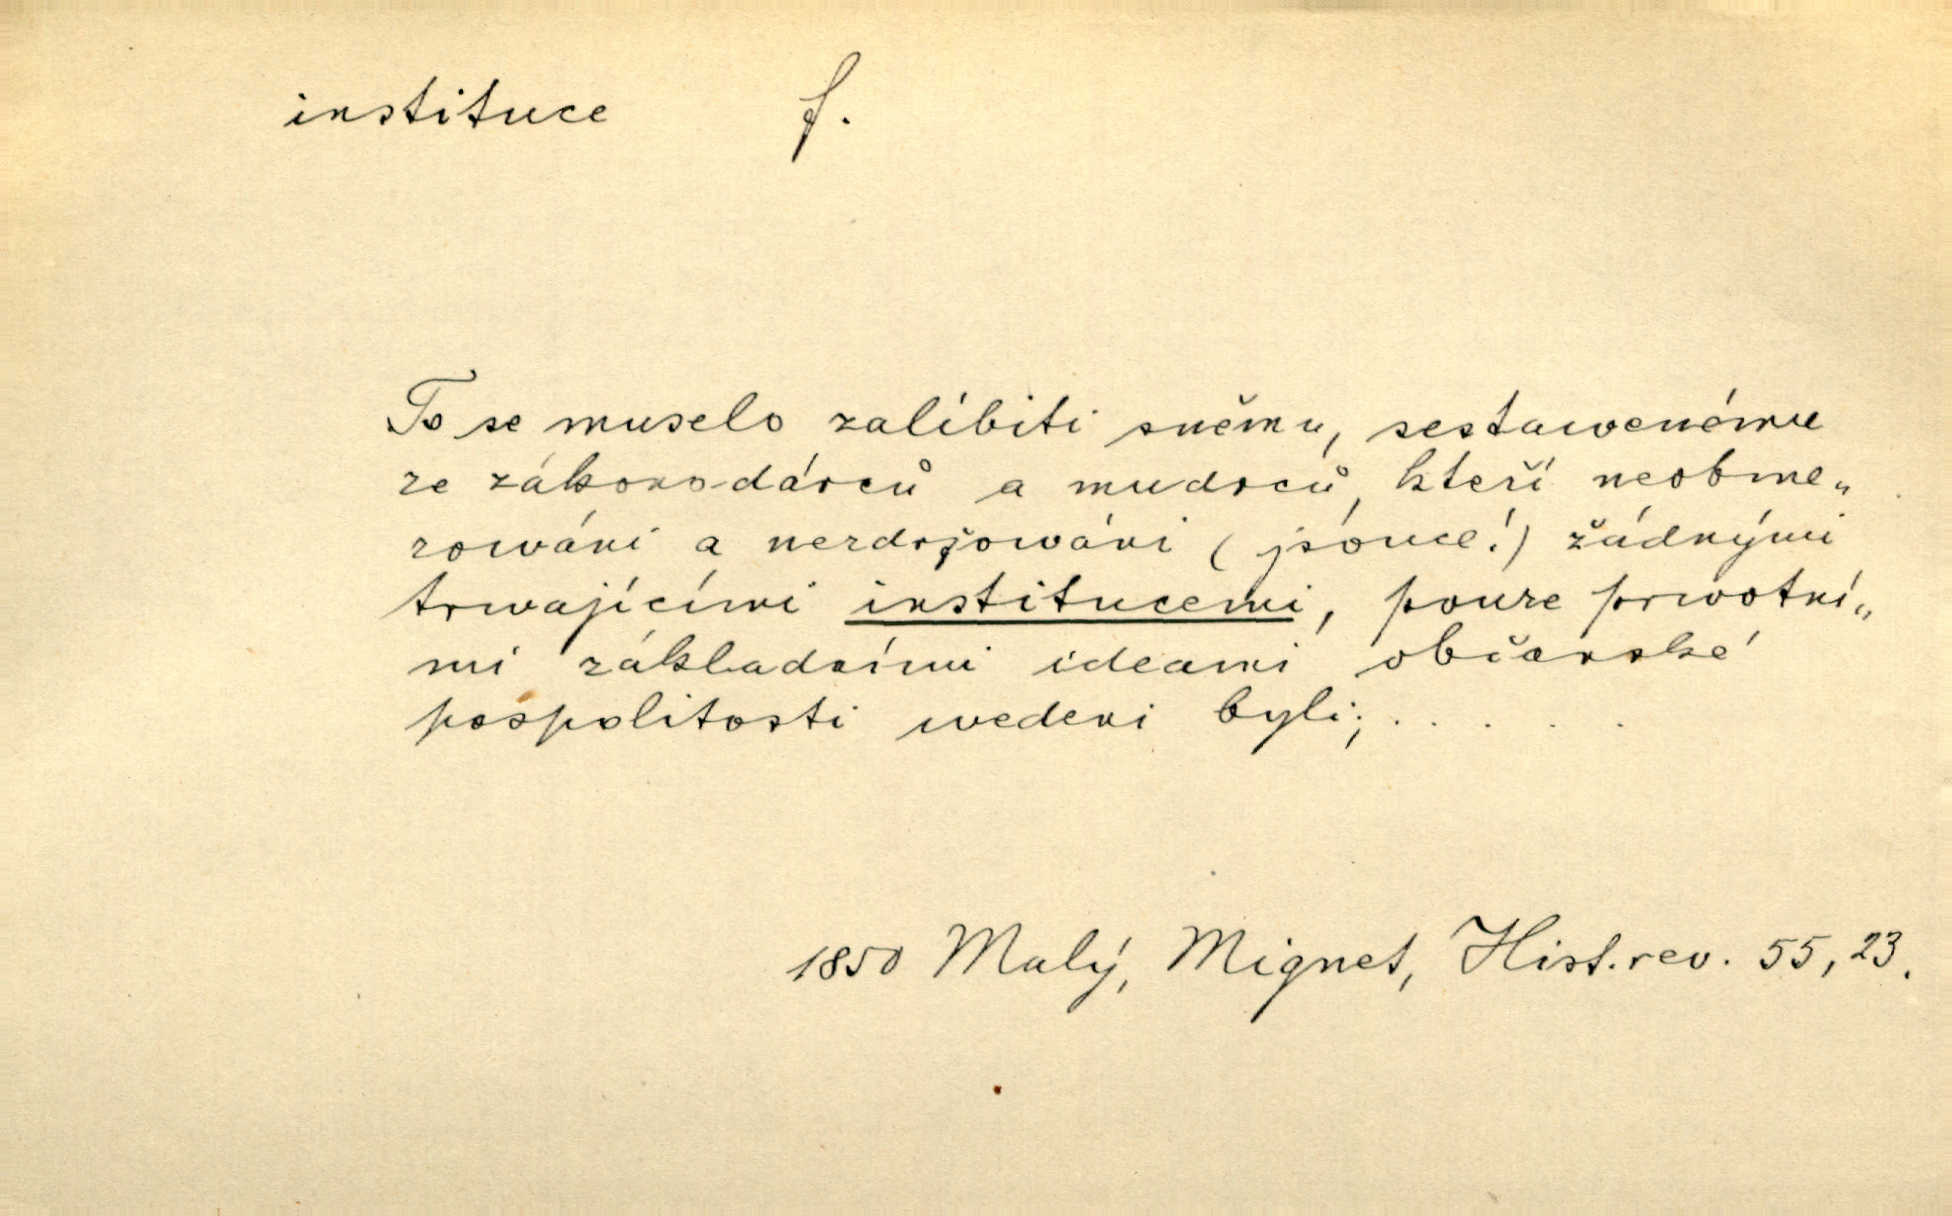 instituce f.
To se muselo zalíbiti sněmu, sestawenému
ze zákonodárců a mudrců, kteří neobme„
zowáni a nezdržowáni (jsouce!) žádnými
trwajícími institucemi, pouze prwotní„
mi základními ideami občanské
pospolitosti wedeni byli; . . . . .
1850 Malý, Mignet, Hist. rev. 55, 23.